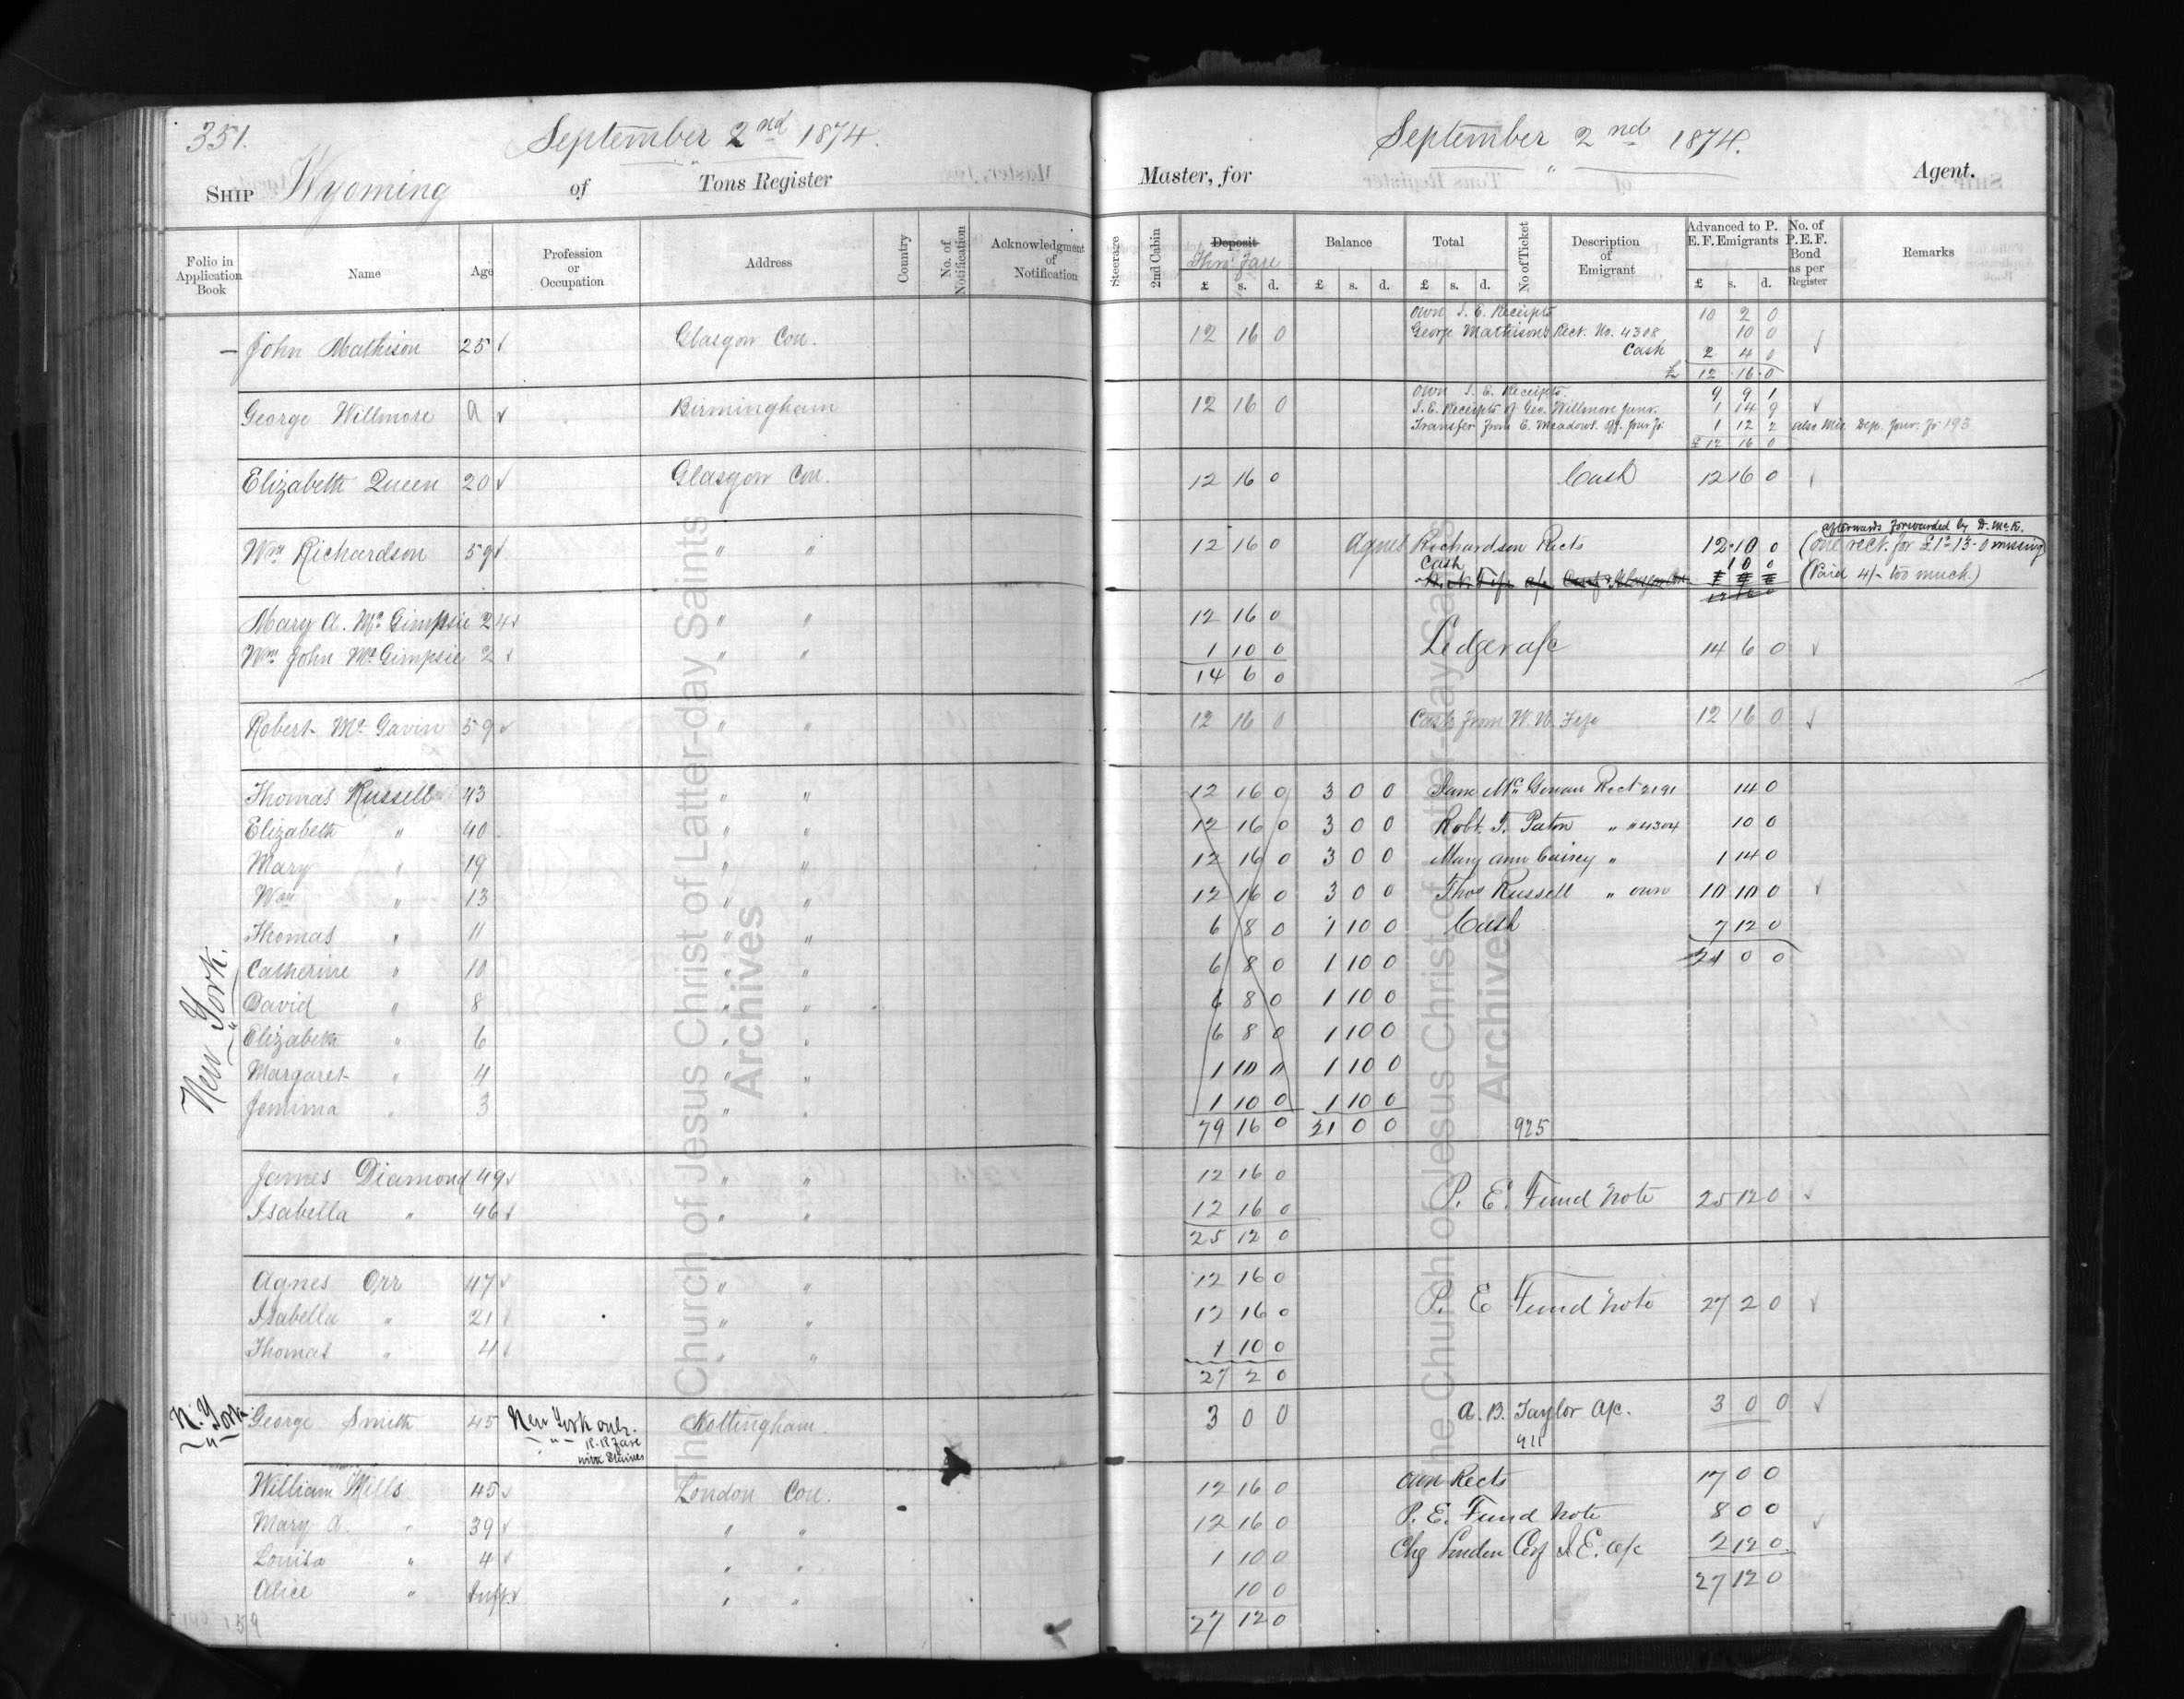 351. September 2nd 1874. September 2nd 1874.
SHIP Wyoming of Tons Register Master, for Agent.
Folio in Application Book Name Age Profession or Occupation Address Country No. of Notification Acknowledgment of Notification Steerage 2nd Cabin Deposit Thro' Fare £ s. d. Balance £ s. d. Total £ s. d. No of Ticket Description of Emigrant Advanced to P. E. F. Emigrants £ s. d. No. of P. E. F. Bond as per Register Remarks
own I. E. Receipts 10 2 0
— John Mathison 25 ✓ Glasgow Con. 12 16 0 George Mathisons Rect. No. 4308 10 0 ✓
Cash 2 4 0
£ 12 16 0
own I. E. Receipts. 9 9 1
George Willmore a ✓ Birmingham 12 16 0 I.E. Receipts of Geo. Willmore Junr. 1 14 9 ✓
Transfer from E. Meadows. 1 12 2 also Mis. Dep. Jour. fo 193
£12 16 0
Elizabeth Queen 20 ✓ Glasgow Con. 12 16 0 Cash 12 16 0 ✓
afterwards forwarded by D. McK.
Wm Richardson 59 ✓ " " 12 16 0 Agnes Richardson Rects 12 10 0 (one rect. for £1-13-0 missing
Cash 10 0 (Paid 4/- too much.)
Mary A. Mc Gimpsie 24 ✓ " " 12 16 0
Wm John Mc Gimpsie 2 ✓ " " 1 10 0 Ledger a/c 14 6 0 ✓
14 6 0
Robert Mc Gavin 59 ✓ " " 12 16 0 Cash from W. N. Fife 12 16 0 ✓
Thomas Russell 43 " " 12 16 0 3 0 0 Rect 2191 14 0
Elizabeth " 40 " " 12 16 0 3 0 0 Robt. T. Paton " " 4304 10 0
Mary " 19 " " 12 16 0 3 0 0 Mary ann Cairey " 1 14 0
Wm " 13 " " 12 16 0 3 0 0 Thos Russell " own 10 10 0 ✓
Thomas " 11 " " 6 8 0 1 10 0 Cash 7 12 0
Catherine " 10 " " 6 8 0 1 10 0 21 0 0
David " 8 " " 6 8 0 1 10 0
Elizabeth " 6 " " 6 8 0 1 10 0
Margaret " 4 " " 1 10 0 1 10 0
Jemima " 3 " " 1 10 0 1 10 0
79 16 0 21 0 0 925
New York.
James Diamond 49 ✓ " " 12 16 0
Isabella " 46 ✓ " " 12 16 0 P. E. Fund Note 25 12 0 ✓
25 12 0
Agnes Orr 47 ✓ " " 12 16 0
Isabella " 21 ✓ " " 12 16 0 P. E Fund Note 27 2 0 ✓
Thomas " 4 ✓ " " 1 10 0
27 2 0
N. York George Smith 45 New York only. Nottingham. 3 0 0 A. B. Taylor A/c. 3 0 0 ✓
R.R Fare with Staines 911
William Mills 45 ✓ London Con. 12 16 0 own Rects 17 0 0
Mary A. " 39 ✓ " " 12 16 0 P. E. Fund Note 8 0 0 ✓
Louisa " 4 ✓ " " 1 10 0 Chg London Conf I. E. a/c 2 12 0
Alice " Inft. ✓ " " 10 0 27 12 0
27 12 0
159
The Church of Jesus Christ of Latter-day Saints
Archives
The Church of Jesus Christ of Latter-day Saints
Archives